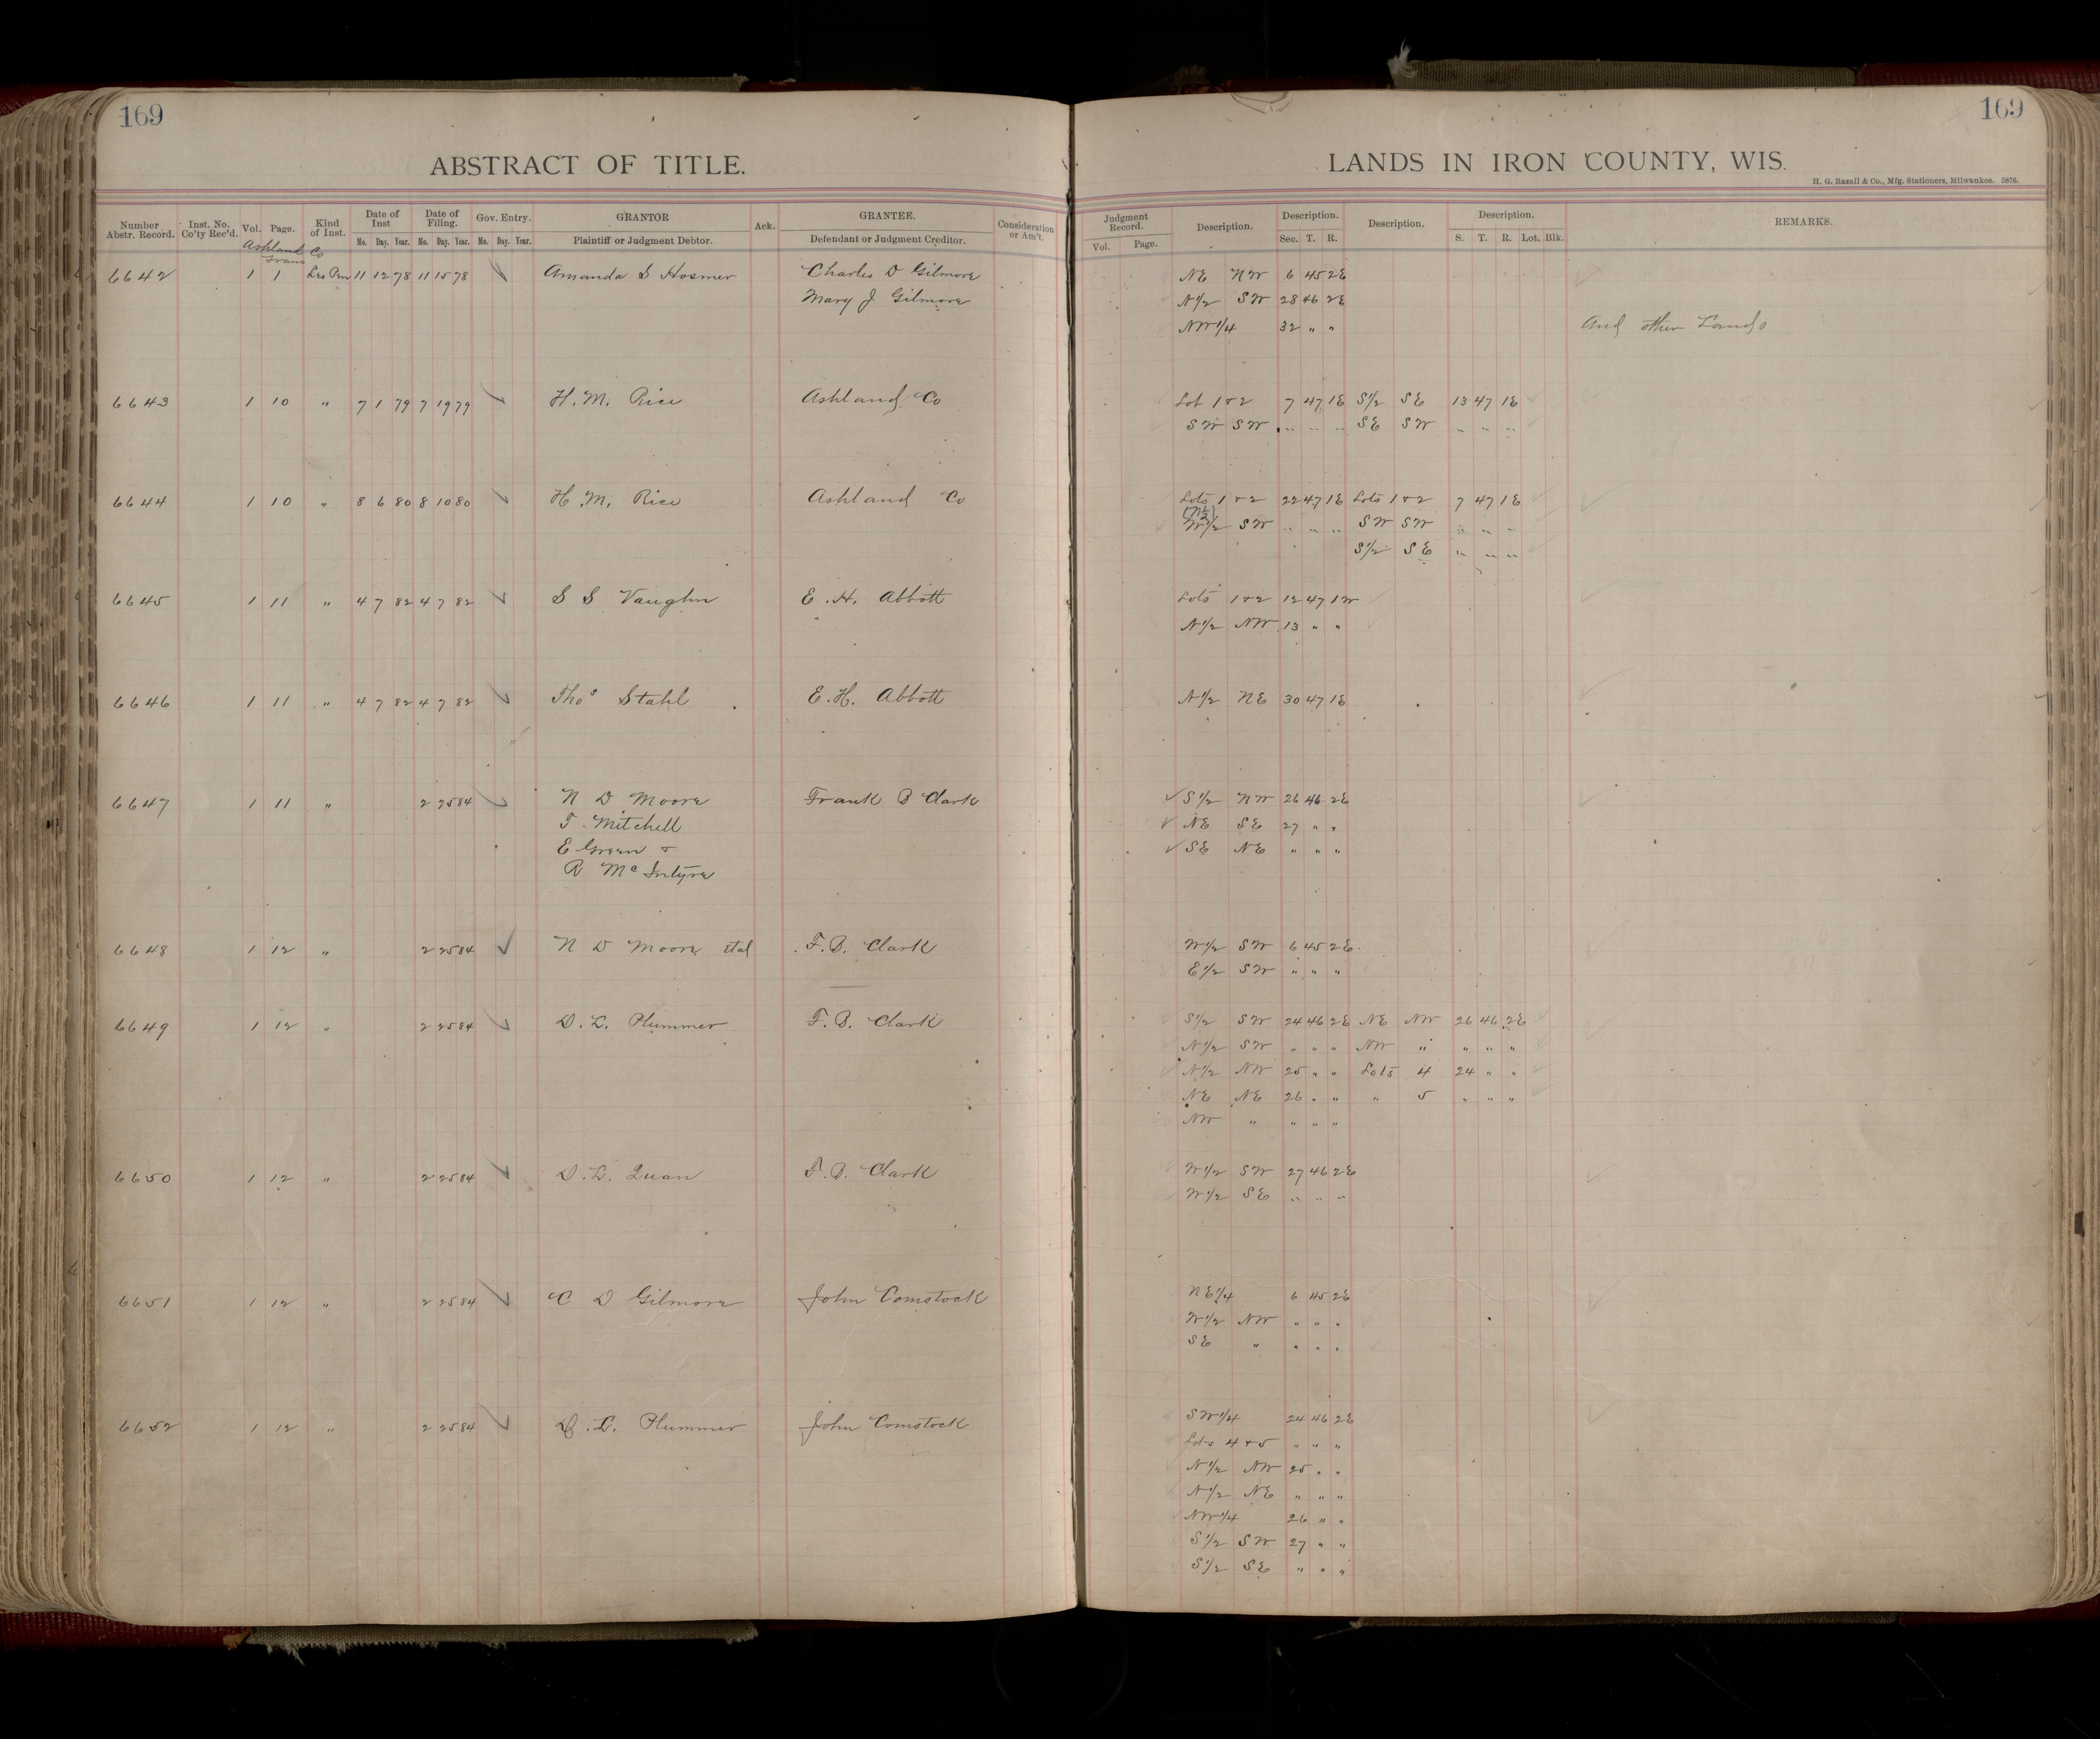 169
169
ABSTRACT OF TITLE.
LANDS IN IRON COUNTY, WIS.
H. G. Razall & Co., Mfg. Stationers, Milwaukee. 5876.
Number Abstr. Record. Inst. No. Co'ty Rec'd. Vol. Page. Kind of Inst. Date of Inst Date of Filing. Gov. Entry. GRANTOR Ack. GRANTEE. Consideration or Am't. Judgment Record. Description. Description. Description. Description. REMARKS.
No. Day. Year. No. Day. Year. No. Day. Year. Plaintiff or Judgment Debtor. Defendant or Judgment Creditor. Vol. Page. Sec. T. R. S. T. R. Lot. Blk.
Ashland Co
Trans
6642 1 1 Les Pen 11 12 78 11 15 78 Amanda S Hosmer Charles D Gilmore NE NW 6 45 2E
Mary J Gilmore N1/2 SW 28 46 2E
NW1/4 32 " " And other Lands
6643 1 10 " 7 1 79 7 19 79 H. M. Rice Ashland Co Lot 1+2 7 47 1E S1/2 SE 13 47 1E
SW SW " " " SE SW " " "
6644 1 10 " 8 6 80 8 10 80 H. M. Rice Ashland Co Lots 1+2 22 47 1E Lots 1+2 7 47 1E
W1/2 SW " " " SW SW " " "
S1/2 SE " " "
6645 1 11 " 4 7 82 4 7 82 S S Vaughn E. H. Abbott Lots 1+2 12 47 1W
N1/2 NW 13 " "
6646 1 11 " 4 7 82 4 7 82 Thos Stahl E. H. Abbott N1/2 NE 30 47 1E
6647 1 11 " 2 25 84 N D Moore Frank B Clark S1/2 NW 26 46 2E
T. Mitchell NE SE 27 " "
E Green + SE NE " " "
R McIntyre
6648 1 12 " 2 25 84 N D Moore etal F. B. Clark W1/2 SW 6 45 2E
E1/2 SW " " "
6649 1 12 " 2 25 84 D. L. Plummer F. B. Clark S1/2 SW 24 46 2E NE NW 26 46 2E
N1/2 SW " " " NW " " " "
N1/2 NW 25 " " Lots 4 24 " "
NE NE 26 " " " 5 " " "
NW " " " "
6650 1 12 " 2 25 84 D. L. Quan F. B. Clark W1/2 SW 27 46 2E
W1/2 SE " " "
6651 1 12 " 2 25 84 C D Gilmore John Comstock NE1/4 6 45 2E
W1/2 NW " " "
SE " " " "
6652 1 12 " 2 25 84 D. L. Plummer John Comstock SW1/4 24 46 2E
Lots 4+5 " " "
N1/2 NW 25 " "
N1/2 NE " " "
NW1/4 26 " "
S1/2 SW 27 " "
S1/2 SE " " "